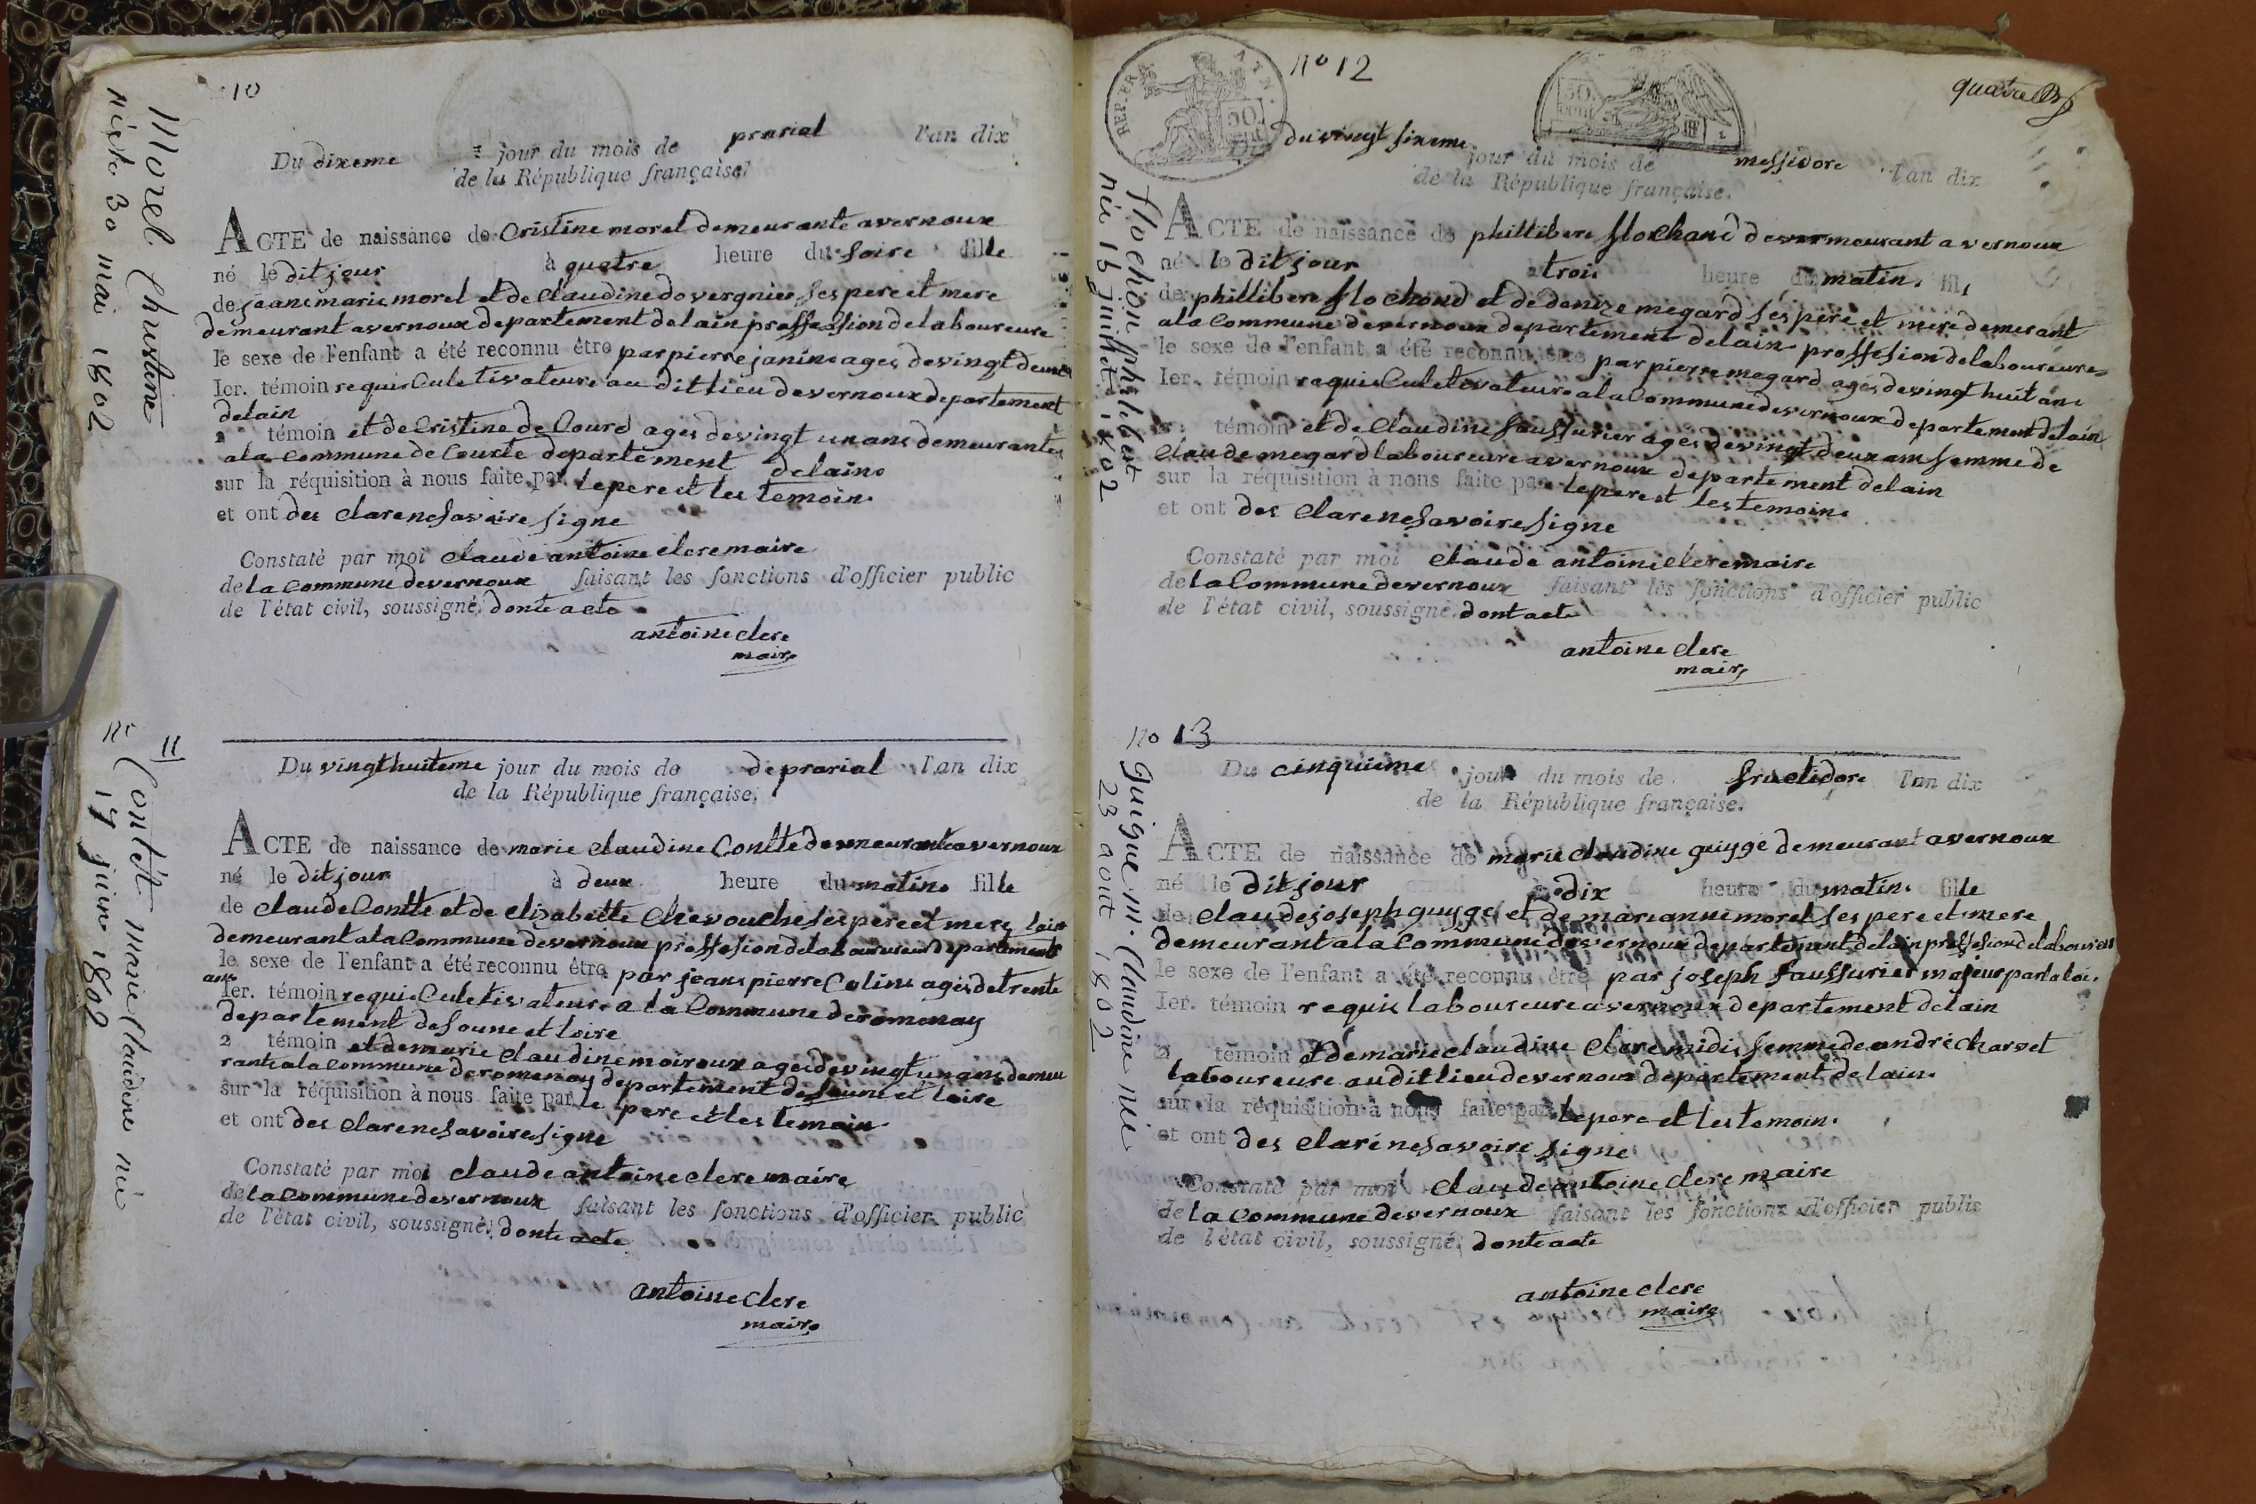 10
Morel Christine
née le 30 mai 1802
Du dixeme jour du mois de prarial l'an dix
de la République française
ACTE de naissance de Cristine morel demeurante avernoux
né le dit jour à quatre heure du soire fille
de jeane marie morel et de Claudine dovergnier ses pere et mere
demeurant avernoux departement delain proffession delaboureure
le sexe de l'enfant a été reconnu être par pierre janine ages devingt deux
Ier. témoin requis Culetivateure au dit lieu devernoux departement
delain
2 témoin et de Cristine de Courd ages devingt un ans demeurante
ala Commune de Courte departement delaine
sur la réquisition à nous faite par le pere et les temoin
et ont des clare ne savoire signe
Constaté par moi claude antoine clere maire
de la Commune devernoux faisant les fonctions d'officier public
de l'état civil, soussigné, donte acte
antoine clere
maire
11
Contet marie Claudine née
le 17 juin 1802
Du vingt huiteme jour du mois de de prarial l'an dix
de la République française.
ACTE de naissance de marie claudine Contte demeurante avernoux
né le dit jour à deux heure du matine fille
de claude Contte et de elizabette Chevouche ses pere et mere lain
demeurant ala Commune devernoux proffesion delaboureure departement
le sexe de l'enfant a été reconnu être par jeane pierre Coline ages detrente
ans
Ier. témoin requis Culetivateure a la Commune deromenay
departement desoune et loire
2 témoin et de marie claudine moiroux ages devingt un ans demeu
rante ala Commune deromenay departement desoune et loire
sur la réquisition à nous faite par le pere et les temoin
et ont des clare ne savoire signe
Constaté par moi claude antoine clere maire
de la Commune devernoux faisant les fonctions d'officier public
de l'état civil, soussigné, donte acte
antoine clere
maire
no 12
REP. FRA
50
cent
quatre
flochon philibert
née 15 juillet 1802
Du du vingt sixeme jour du mois de messidore l'an dix
de la République française.
ACTE de naissance de phillibere flochand demeurant avernoux
né le dit jour a trois heure du matin fils
de phillibere flochond et de denize megard ses pere et mere demeurant
ala Commune devernoux departement delain proffesion delaboureure
le sexe de l'enfant a été reconnu être par pierre megard ages devingt huit ans
Ier. témoin requis Culetivateure ala Commune devernoux departement delain
témoin et de Claudine saussurier ages devingt deux ans femme de
Claude megard laboureure avernoux departement delain
sur la réquisition à nous faite par le pere et les temoins
et ont des clare ne savoire signe
Constaté par moi claude antoine clere maire
de la Commune devernoux faisant les fonctions d'officier public
de l'état civil, soussigné, dont acte
antoine clere
maire
no 13
Guigue m. Claudine née
23 aout 1802
Du cinquieme jour du mois de fructidore l'an dix
de la République française.
ACTE de naissance de marie claudine guigge demeurant avernoux
né le dit jour à dix heure du matin fille
de claude joseph guigge et de marianne morel ses pere et mere
demeurant ala Commune devernoux departement delain proffesion delaboureure
le sexe de l'enfant a été reconnu être par joseph saussurier majeur par la loi
Ier. témoin requis laboureure avernoux departement delain
2 témoin et de marie claudine Clare midi femme de andré charvet
laboureure audit lieu devernoux departement delain
sur la réquisition à nous faite par le pere et les temoin
et ont des clare ne savoire signe
Constaté par moi claude antoine clere maire
de la Commune devernoux faisant les fonctions d'officier public
de l'état civil, soussigné, donte acte
antoine clere
maire